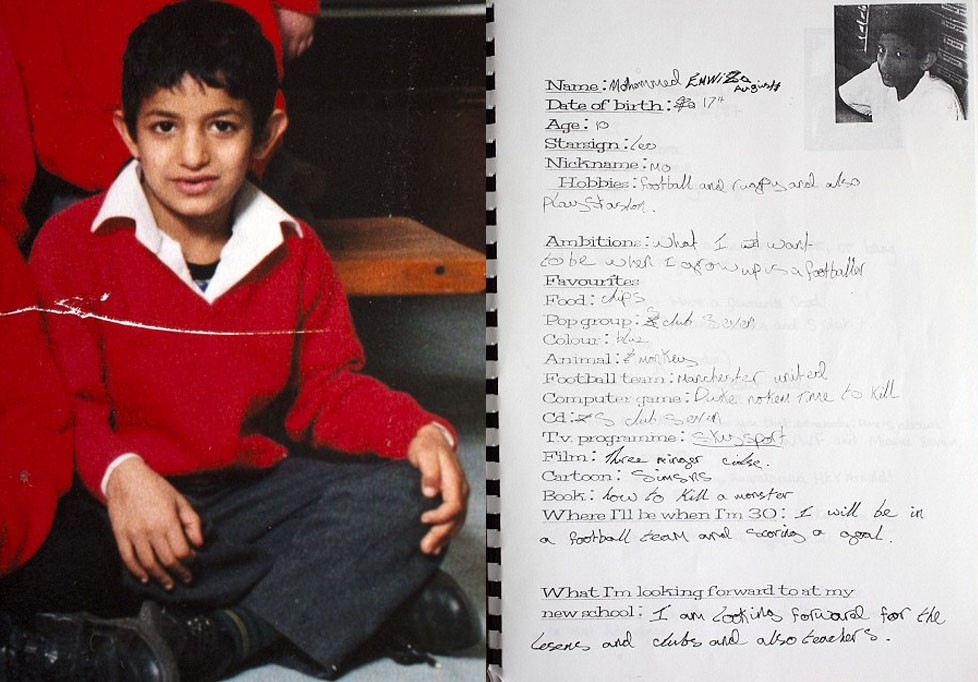 Name: Mohammed EMWiZa
Date of birth: 17th August
Age: 10
Starsign: Leo
Nickname: Mo
Hobbies: football and rugpy and also
playstarstion.
Ambitions: what I want
to be when I grow up is a footballer
Favourites
Food: chips
Pop group: S club Seven
Colour: blue
Animal: monkey
Football team: Manchester united
Computer game: Duke noken Time to Kill
Cd: S club Seven
T.v. programme: sky sport
Film: Three
Cartoon: Simsns
Book: how to Kill a monster
Where I'll be when I'm 30: I will be in
a football team and scoring a goal.
What I'm looking forward to at my
new school: I am looking forward for the
lesens and clubs and also teachers.